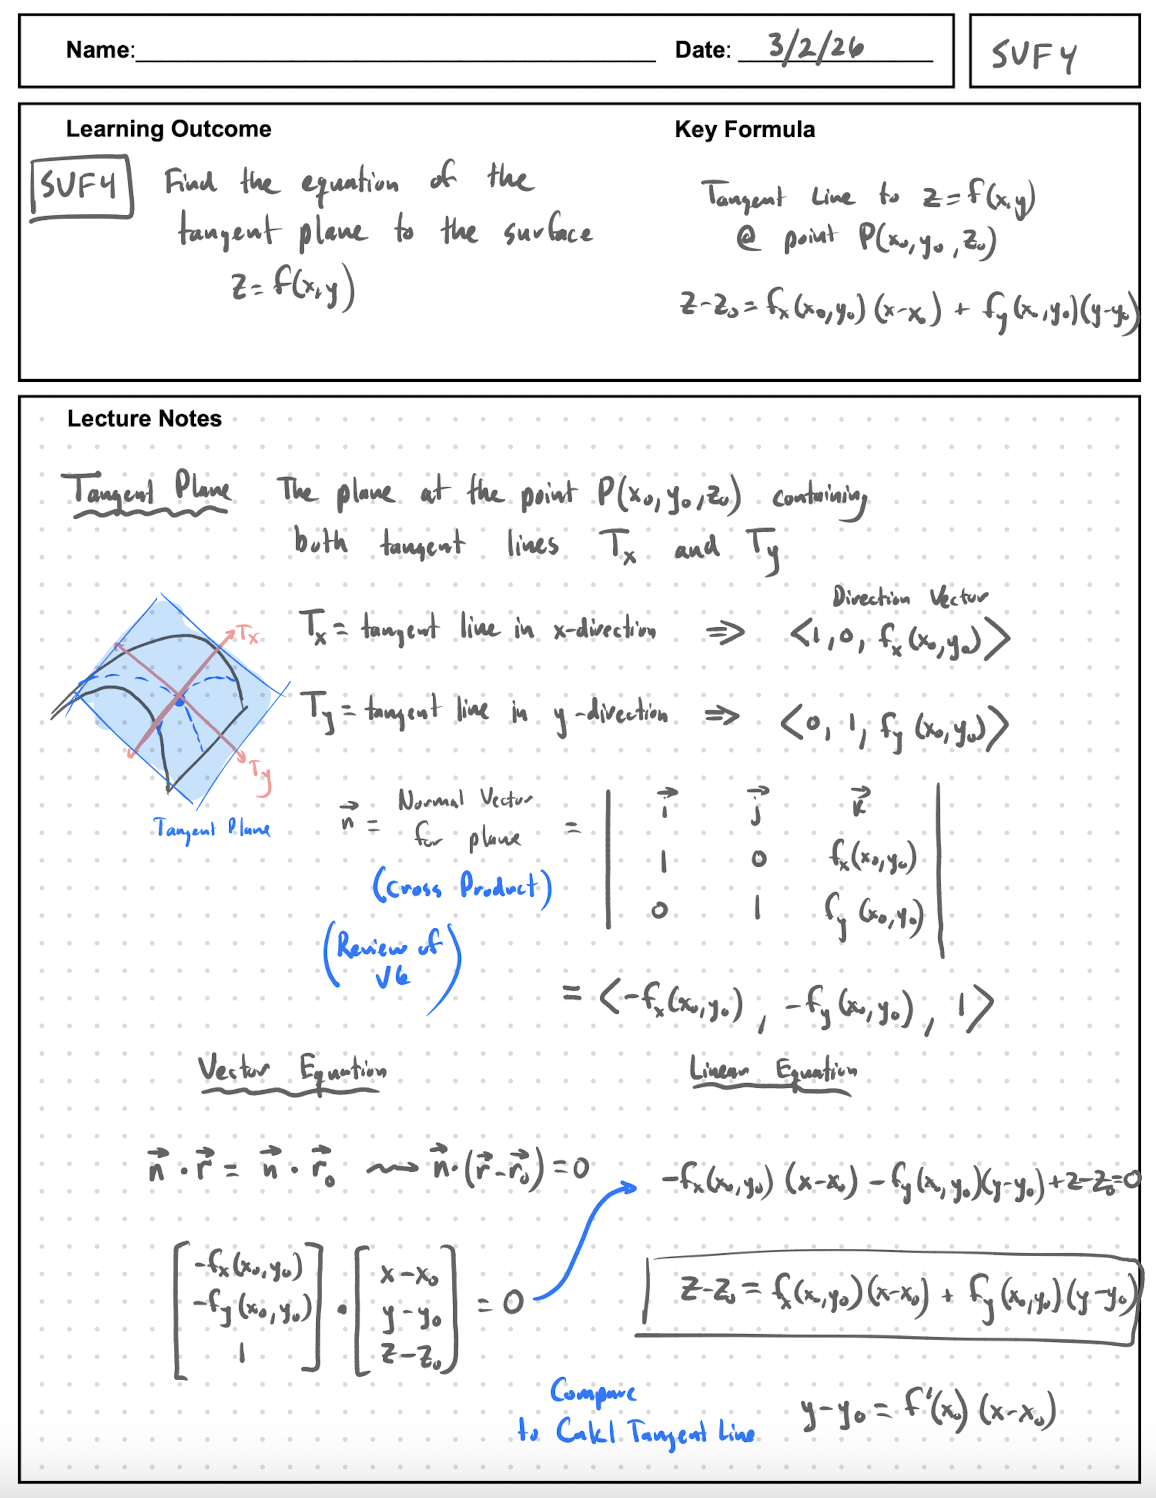 Name: Date: 3/2/26 SVF4
Learning Outcome Key Formula
SVF4 Find the equation of the
tangent plane to the surface
z = f(x,y)
Tangent Line to z=f(x,y)
@ point P(x₀,y₀,z₀)
z-z₀ = fₓ(x₀,y₀)(x-x₀) + f_y(x₀,y₀)(y-y₀)
Lecture Notes
Tangent Plane The plane at the point P(x₀,y₀,z₀) containing
both tangent lines Tₓ and T_y
Direction Vector
Tₓ = tangent line in x-direction ⇒ <1, 0, fₓ(x₀,y₀)>
T_y = tangent line in y-direction ⇒ <0, 1, f_y(x₀,y₀)>
Tₓ
T_y
Tangent Plane
n⃗ = Normal Vector for plane = | i⃗ j⃗ k⃗ |
| 1 0 fₓ(x₀,y₀) |
| 0 1 f_y(x₀,y₀) |
(Cross Product)
(Review of
V6)
= <-fₓ(x₀,y₀), -f_y(x₀,y₀), 1>
Vector Equation Linear Equation
n⃗ · r⃗ = n⃗ · r⃗₀ ⇝ n⃗ · (r⃗ - r⃗₀) = 0
-fₓ(x₀,y₀)(x-x₀) - f_y(x₀,y₀)(y-y₀) + z-z₀ = 0
[-fₓ(x₀,y₀)] [x-x₀]
[-f_y(x₀,y₀)] · [y-y₀] = 0
[1] [z-z₀]
z-z₀ = fₓ(x₀,y₀)(x-x₀) + f_y(x₀,y₀)(y-y₀)
Compare
to Calc1 Tangent Line y-y₀ = f'(x₀)(x-x₀)